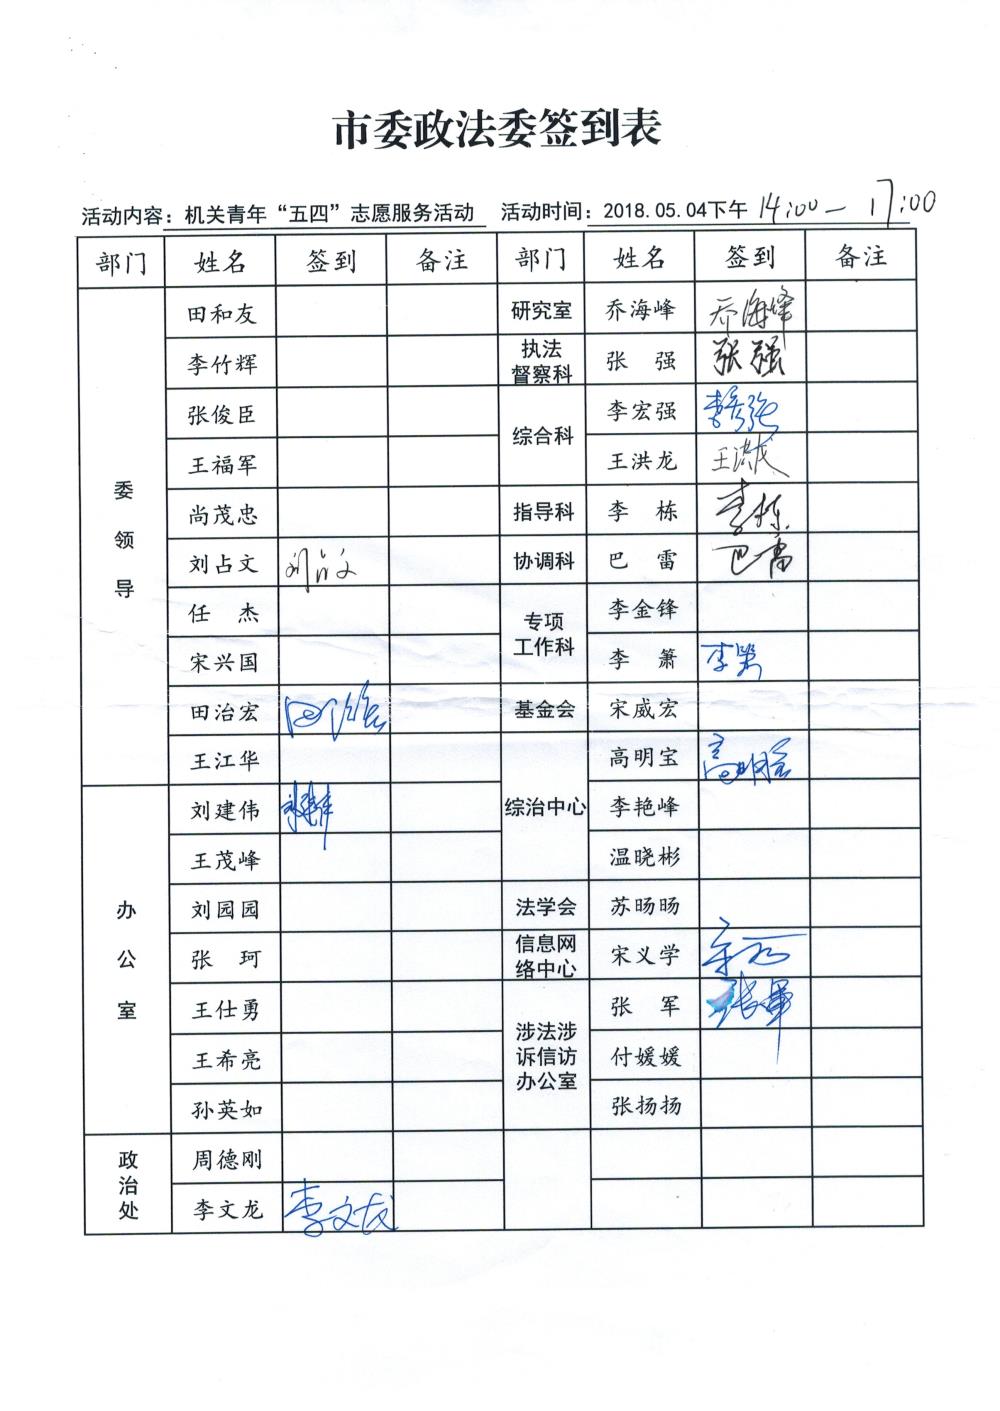 市委政法委签到表
活动内容：机关青年“五四”志愿服务活动 活动时间：2018.05.04下午 14:00—17:00
部门 姓名 签到 备注 部门 姓名 签到 备注
委领导 田和友 研究室 乔海峰 乔海峰
李竹辉 执法督察科 张 强 张强
张俊臣 综合科 李宏强 李宏强
王福军 王洪龙 王洪龙
尚茂忠 指导科 李 栋 李栋
刘占文 刘占文 协调科 巴 雷 巴雷
任 杰 专项工作科 李金锋
宋兴国 李 箫 李箫
田治宏 田治宏 基金会 宋威宏
王江华 综治中心 高明宝 高明宝
办公室 刘建伟 刘建伟 李艳峰
王茂峰 温晓彬
刘园园 法学会 苏旸旸
张 珂 信息网络中心 宋义学
王仕勇 涉法涉诉信访办公室 张 军 张军
王希亮 付媛媛
孙英如 张扬扬
政治处 周德刚
李文龙 李文龙